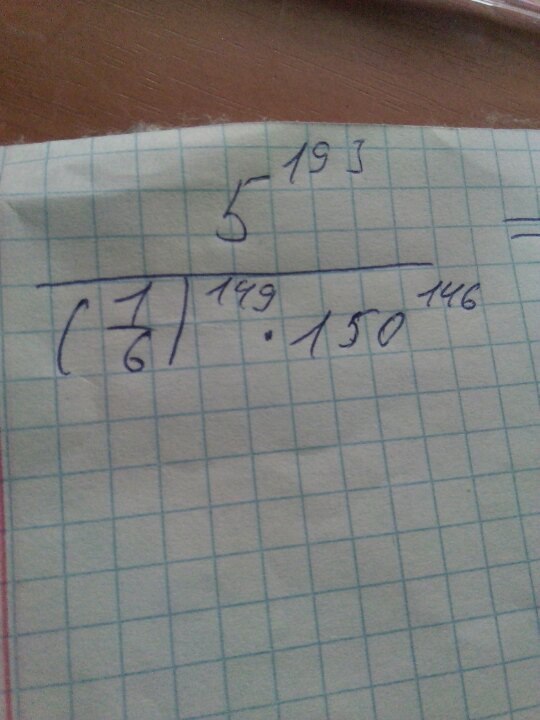 5^193
(1/6)^149 · 150^146 =